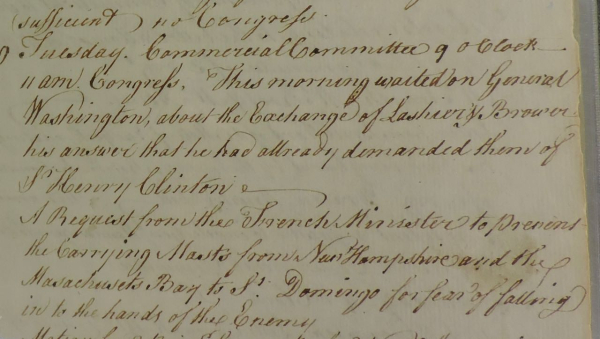 sufficient) no Congress.
Tuesday. Commercial Committee 9 o Clock
11 am. Congress. This morning waited on General
Washington, about the Exchange of Lashier & Brower
his answer that he had allready demanded them of
Sr. Henry Clinton
A Request from the French Minister to prevent
the Carrying Masts from New Hampshire and the
Masachusets Bay to St. Domingo for fear of falling
in to the hands of the Enemy